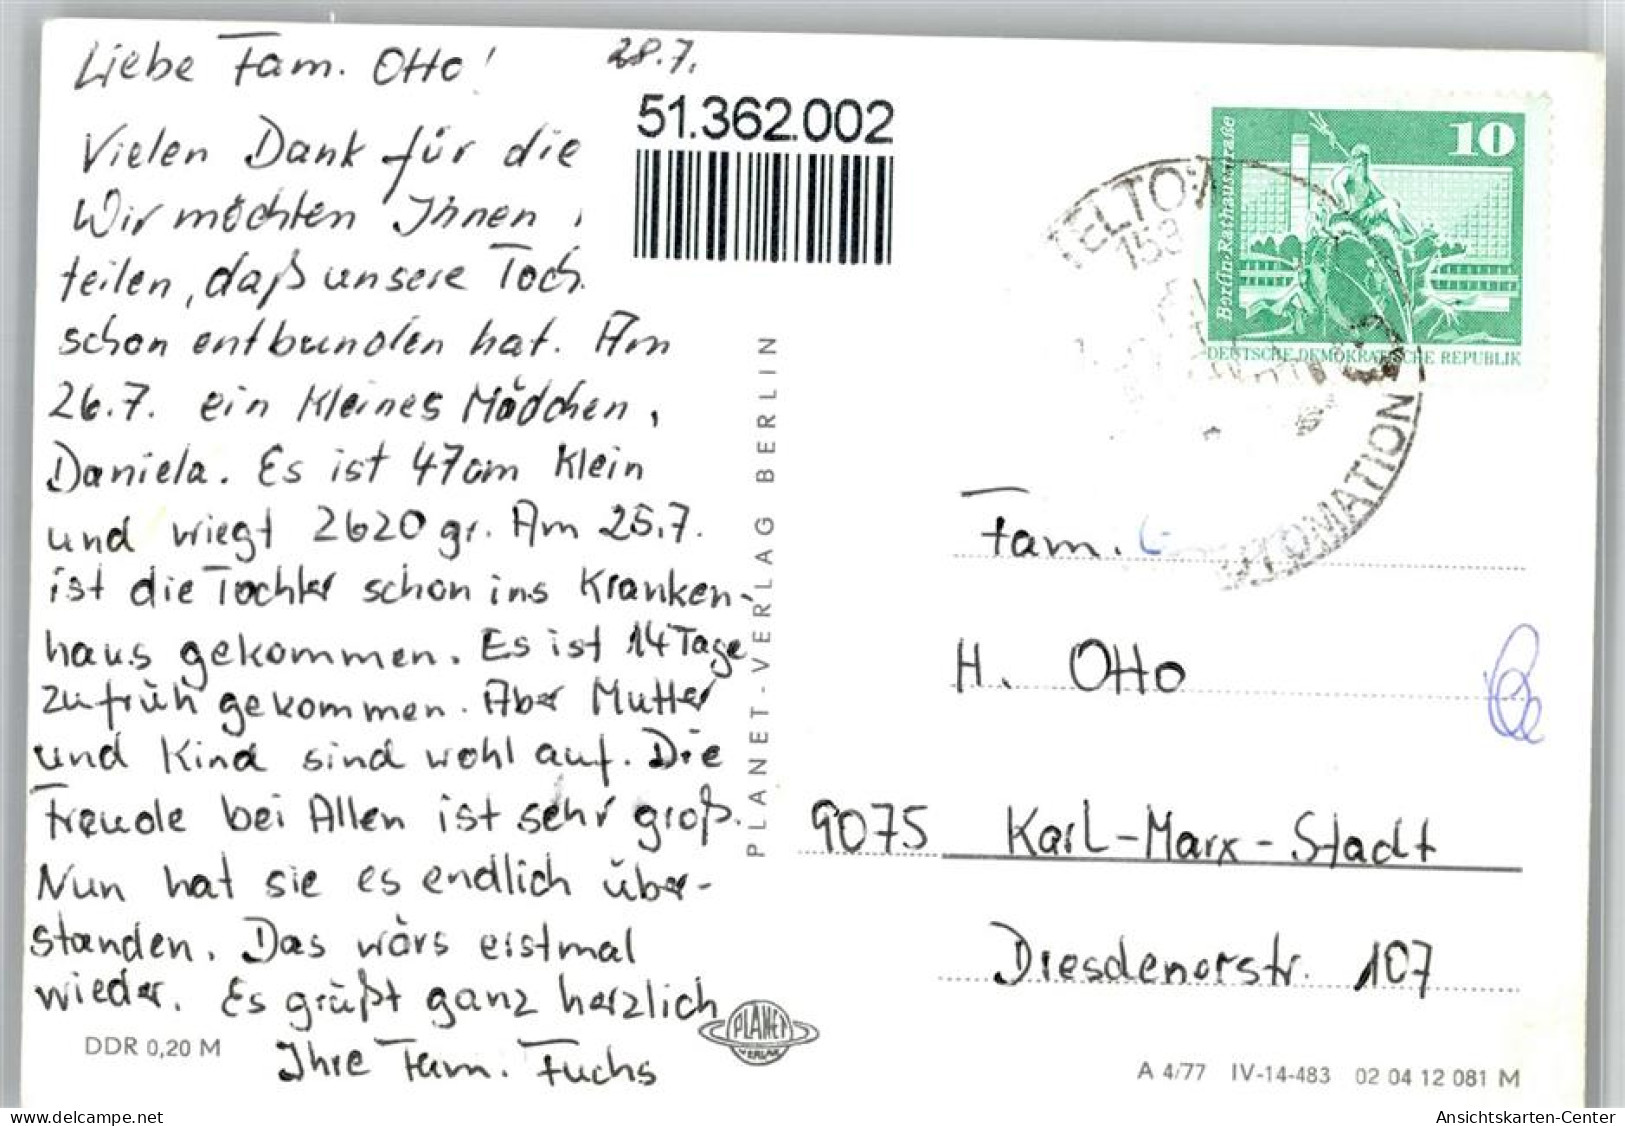 Liebe Fam. Otto!
28.7.
51.362.002
Vielen Dank für die
Wir möchten Ihnen
teilen, daß unsere Toch
schon entbunden hat. Am
26.7. ein kleines Mädchen,
Daniela. Es ist 47cm klein
und wiegt 2620 gr. Am 25.7.
ist die Tochter schon ins Kranken-
haus gekommen. Es ist 14 Tage
zu früh gekommen. Aber Mutter
und Kind sind wohl auf. Die
Freude bei Allen ist sehr groß.
Nun hat sie es endlich über-
standen. Das wärs erstmal
wieder. Es grüßt ganz herzlich
Ihre Fam. Fuchs
DDR 0,20 M
PLANET-VERLAG BERLIN
PLANET
VERLAG
10
Berlin-Rathausstraße
DEUTSCHE DEMOKRATISCHE REPUBLIK
TELTOW
153
AUTOMATION
Fam.
H. Otto
9075 Karl-Marx-Stadt
Dresdenerstr. 107
A 4/77 IV-14-483 02 04 12 081 M
www.delcampe.net
Ansichtskarten-Center